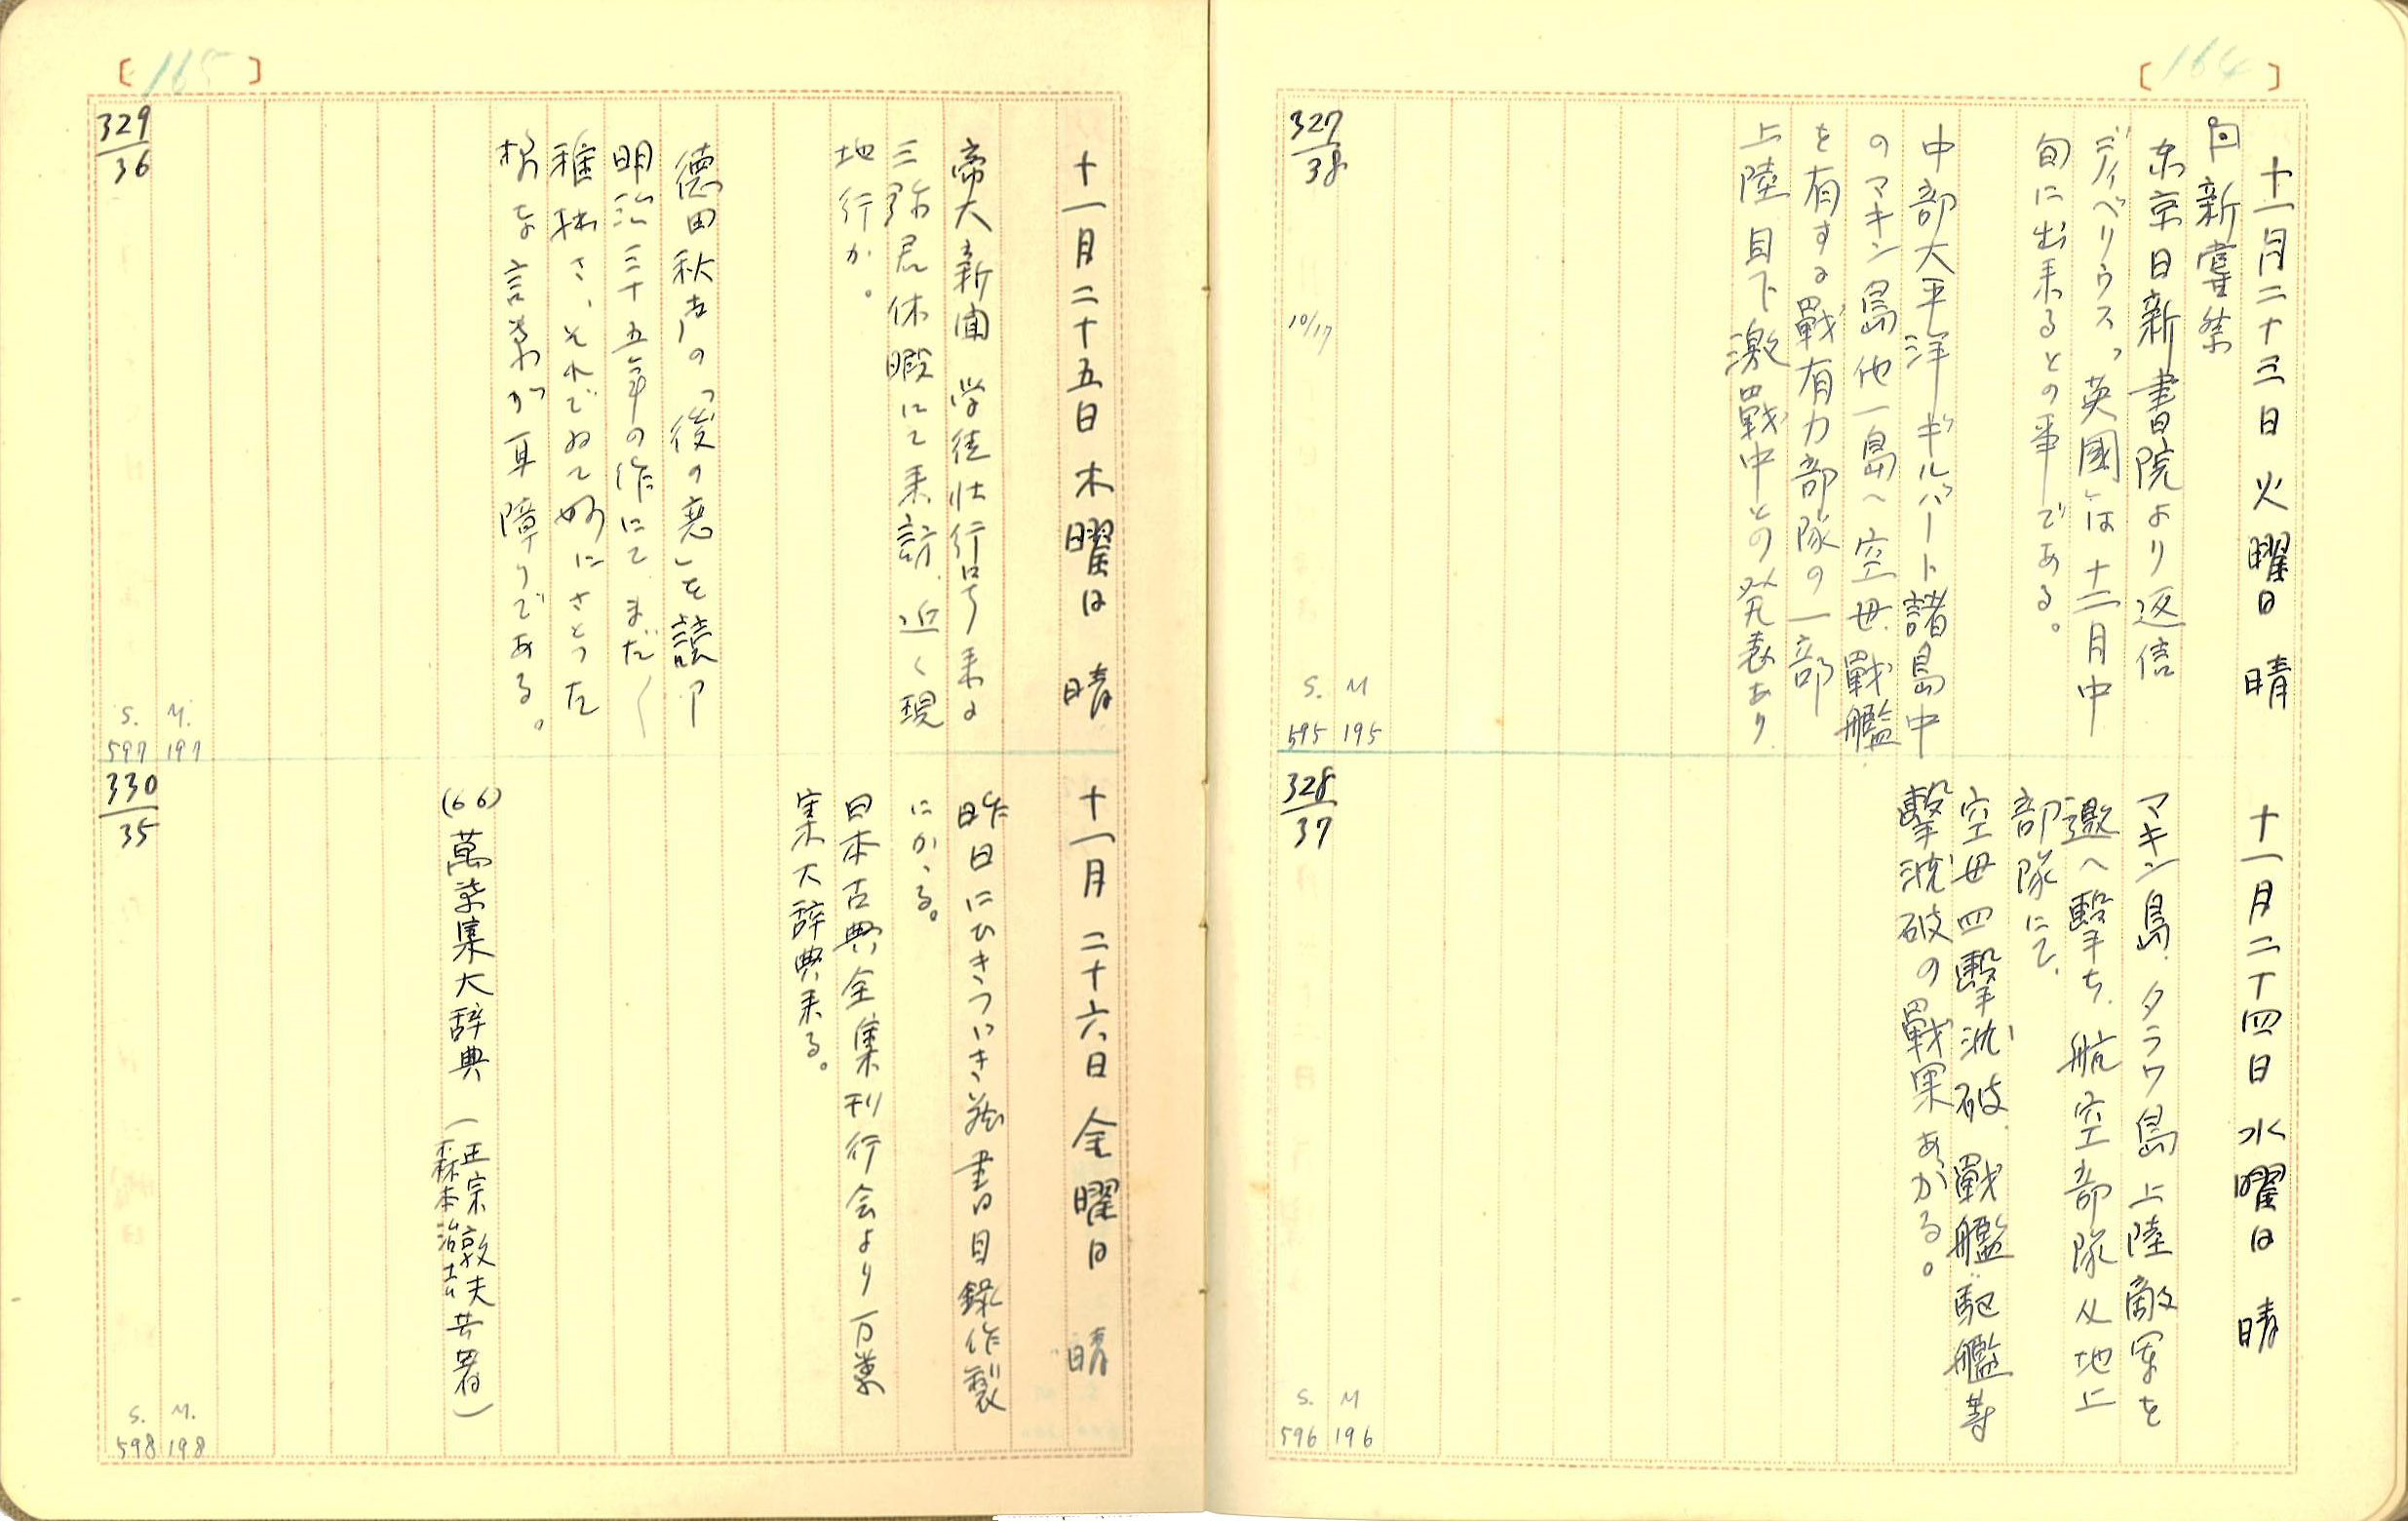 [164]
十一月二十三日 火曜日 晴
新嘗祭
東京日新書院より返信
ディベリウス「英國」は十二月中
旬に出来るとの事である。
中部大平洋ギルバート諸島中
のマキン島他一島へ空母、戰艦
を有する戰有力部隊の一部
上陸目下激戰中との発表あり、
327/38
10/17
S. M
595 195
十一月二十四日 水曜日 晴
マキン島、タラワ島上陸敵軍を
邀へ擊ち、航空部隊从地上
部隊にて、
空母四擊沈破、戰艦、駆艦等
擊沈破の戰果あがる。
328/37
S. M
596 196
[165]
十一月二十五日 木曜日 晴
帝大新聞 学徒壮行号来る
三弥君休暇にて来訪、近く現
地行か。
德田秋声の「後の恋」を読了
明治三十五年の作にてまだ〱
稚拙さ、それでゐて妙にさとった
様な言葉が耳障りである。
329/36
S. M.
597 197
十一月二十六日 金曜日 晴
昨日にひきつゞき蔵書目録作製
にかゝる。
日本古典全集刊行会より万葉
集大辞典来る。
(66) 萬葉集大辞典 (正宗敦夫
森本治吉 共著)
330/35
S. M.
598 198